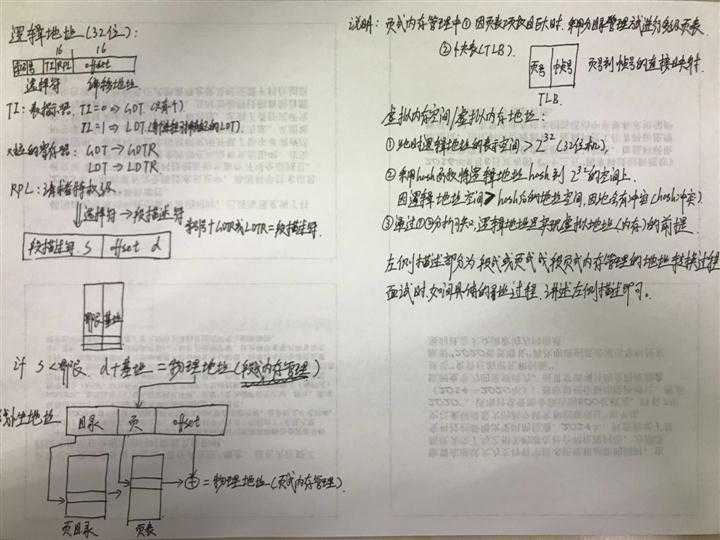 逻辑地址(32位):
16 16
段号 TI RPL offset
选择符 偏移地址
TI: 表指示器, TI=0 ⇒ GDT (只有一个)
TI=1 ⇒ LDT
对应的寄存器: GDT → GDTR
LDT → LDTR
RPL: 请求特权级
⇓ 选择符 → 段描述符
索引号+GDTR或LDTR=段描述符.
段描述符 S offset d
界限 基址
if S<界限 d+基址=物理地址(段式内存管理)
线性地址 目录 页 offset
⊕=物理地址(页式内存管理)
页目录 页表
说明: 页式内存管理中① 因页表项数目巨大时, 采用
②快表(TLB).
页号 帧号 页号到帧号的直接映射.
TLB
虚拟内存空间/虚拟内存地址:
①此时逻辑地址的表示空间>2^32(32位机),
②利用hash函数将逻辑地址hash到2^32的空间上.
因逻辑地址空间>hash后的地址空间, 因此会有冲突(hash冲突)
③通过①②分析可知, 逻辑地址是实现虚拟地址(内存)的前提.
左侧描述部分为段式或页式或段页式内存管理的地址转换过程
面试时, 如问具体的寻址过程, 讲述左侧描述即可。